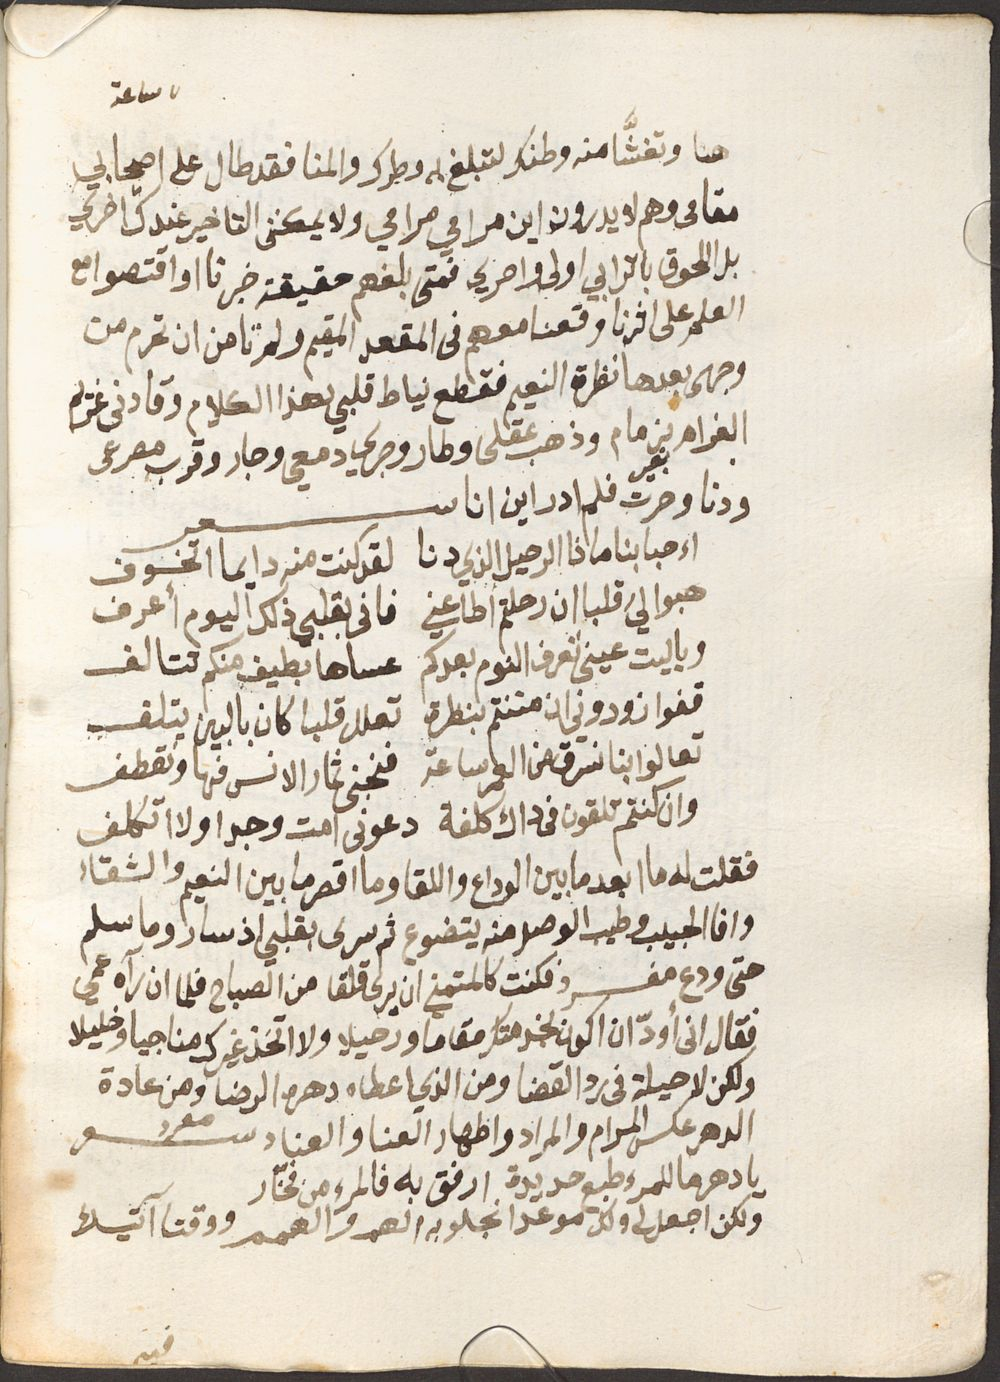 ساعة
هنا وتغشا منه وطنك لتبلغ به وطرك والمنا فقد طال على اصحابي
مقامى وهم لا يدرون اين مرامي مرامي ولا يمكننى التاخير عندك اخرى
بل اللحوق باترابي اولى واحرى فمتى بلغهم حقيقة خبرنا او اقتصوا مع
العلم على اثرنا وقعنا معهم فى المقعد المقيم ولم نامن ان نحرم من
وجهى بعدها نظرة النعيم فقطع نياط قلبي بهذا الكلام وقادنى
الغرام بزمام وذهب عقلى وطار وجرى دمعي وجار وقرب مصرعى
ودنا وحرت فلم ادر اين انا شعر
احبابنا ماذا الرحيل الذي دنا لقد كنت منه دايما اتخوف
هبوا لي قلبا ان رحلتم اطاعني فانى بقلبي ذلك اليوم أعرف
وياليت عينى تعرف النوم بعدكم عساها بطيف منكم تتالف
قفوا زودوني ان مننتم بنظرة تعلل قلبا كان بالبين يتلف
تعالوا بنا نسرق من العمر ساعة فنجنى ثمار الانس فيها ونقطف
وان كنتم تلقون فى ذاك كلفة دعونى امت وجدا ولا اتكلف
فقلت له ما ابعد ما بين الوداع واللقا وما اقصر ما بين النعيم والشقا
وافا الحبيب وطيب الوصل منه يتضوع ثم سرى بقلبي اذ سار وما سلم
حتى ودع مفرد فكنت كالمتمني ان يرى فلقا من الصباح فلما ان رآه عمي
فقال انى أودّ ان اكون بخدمتك مقاما ورحيلا ولا اتخذ غيرك مناجيا وخليلا
ولكن لا حيلة فى رد القضا ومن الذي اعطاه دهره الرضا ومن عادة
الدهر عكس المرام والمراد واظهار العنا والعناد شعر مفرد
يا دهر ما للمرء طبع حديدة ارفق به فالمرء من فخّار
ولكن اجعل لى ولك موعدا نجلو به الهم والغمم ووقتا آتيك
فيه